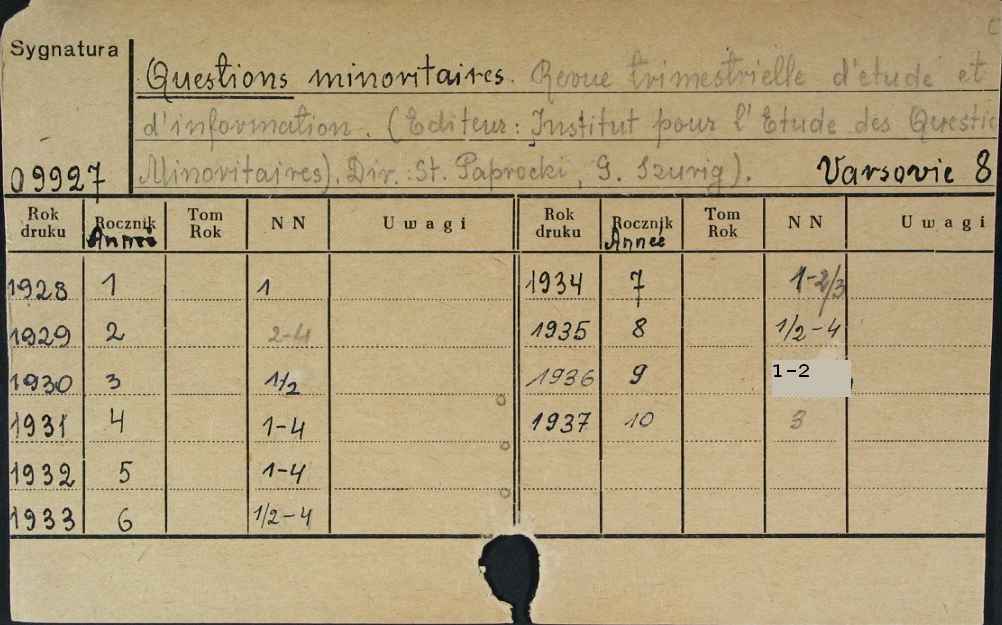 Sygnatura
Questions minoritaires. Revue trimestrielle d'étude et
d'information. (Editeur: Institut pour l'Etude des Questio
Minoritaires). Dir.: St. Paprocki, G. Szurig). Varsovie 8
09927
Rok druku Rocznik Année Tom Rok NN Uwagi Rok druku Rocznik Année Tom Rok NN Uwagi
1928 1 1 1934 7 1-2/3
1929 2 2-4 1935 8 1/2-4
1930 3 1/2 1936 9 1-2
1931 4 1-4 1937 10 3
1932 5 1-4
1933 6 1/2-4